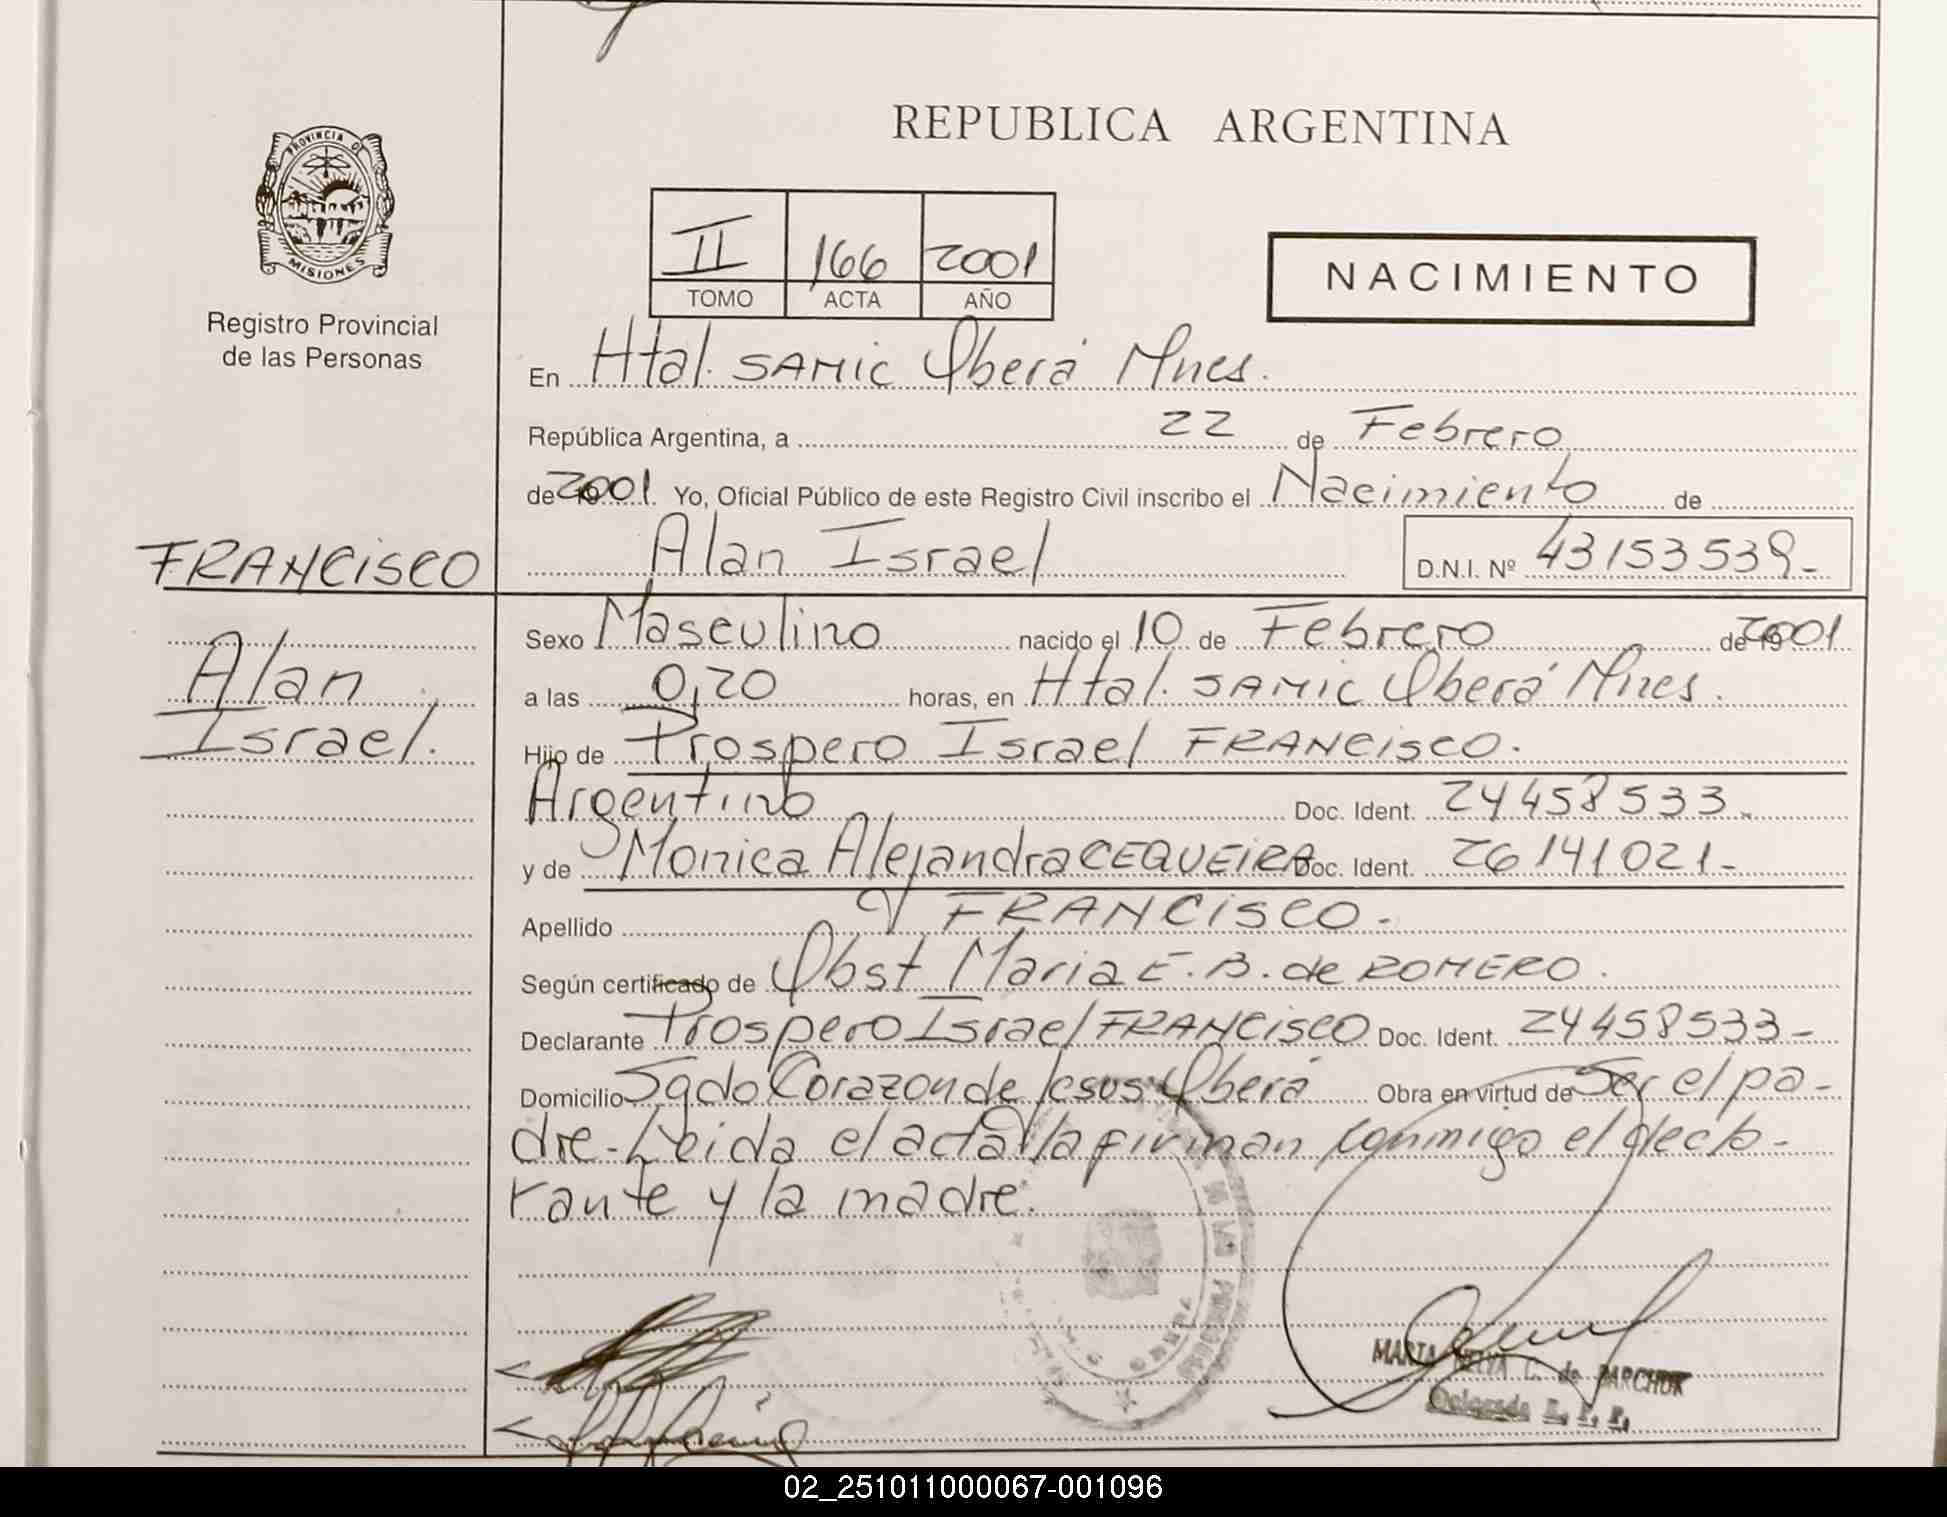 REPUBLICA ARGENTINA
PROVINCIA DE
MISIONES
Registro Provincial
de las Personas
II 166 2001
TOMO ACTA AÑO
NACIMIENTO
En Htal. SAMIC Oberá Mnes.
República Argentina, a 22 de Febrero
de 2001. Yo, Oficial Público de este Registro Civil inscribo el Nacimiento de
FRANCISCO
Alan Israel D.N.I. Nº 43153539-
Alan
Israel.
Sexo Masculino nacido el 10 de Febrero de 2001
a las 0,20 horas, en Htal. SAMIC Oberá Mnes.
Hijo de Prospero Israel FRANCISCO.
Argentino Doc. Ident. 24458533-
y de Monica Alejandra CEQUEIRA Doc. Ident. 26141021-
Apellido FRANCISCO-
Según certificado de Obst Maria E. B. de ROMERO.
Declarante Prospero Israel FRANCISCO Doc. Ident. 24458533-
Domicilio Sgdo Corazon de Jesus Oberá Obra en virtud de Ser el pa-
dre- Leida el acta la firman conmigo el decla-
rante y la madre.
MARTA NELYA C. de BARCHUK
Delegada R. P. P.
02_251011000067-001096